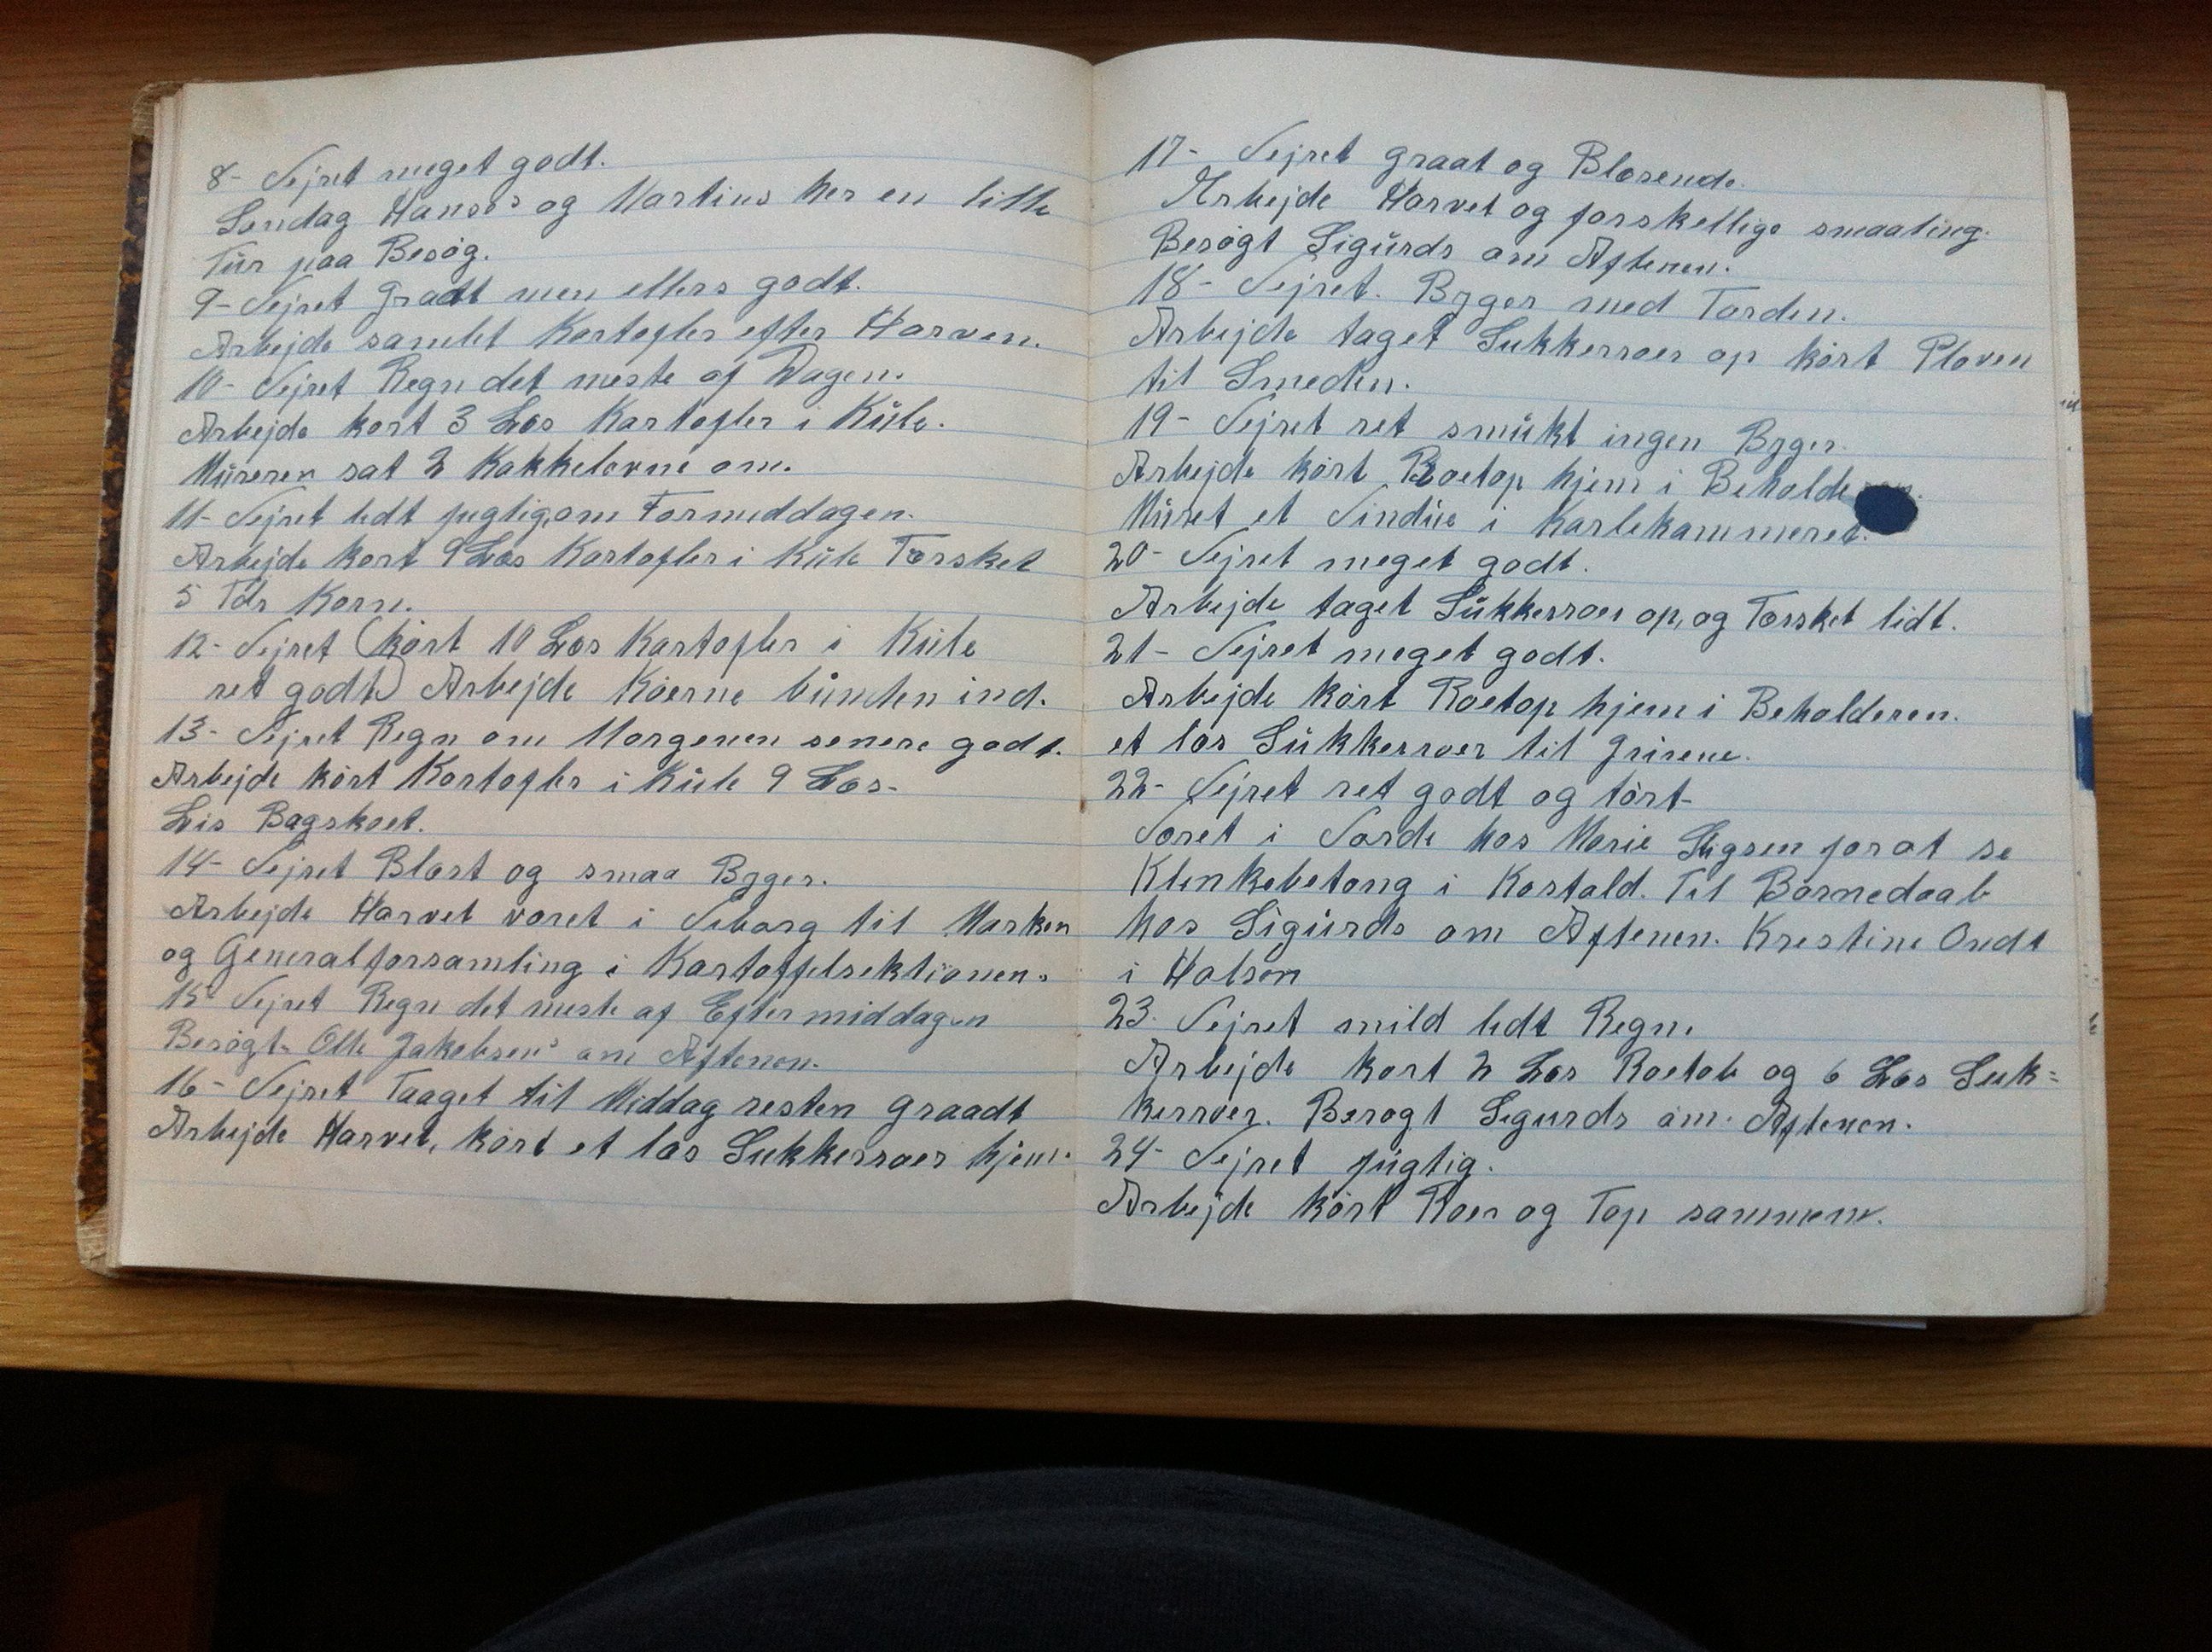 8- Vejret meget godt.
Søndag Hanses og Martins her en lille
Tur paa Besøg.
9- Vejret Graadt men ellers godt.
Arbejde samlet Kartofler efter Harven.
10- Vejret Regn det meste af Dagen.
Arbejde kørt 3 Læs Kartofler i Kule.
Mureren sat 2 Kakkelovne om.
11- Vejret lidt fugtig, om Formiddagen.
Arbejde kørt 9 Læs Kartofler i Kule Tærsket
5 Tdr Korn.
12- Vejret (kørt 10 Læs Kartofler i Kule
ret godt) Arbejde Køerne bunden ind.
13- Vejret Regn om Morgenen senere godt.
Arbejde kørt Kartofler i Kule 9 Læs-
Lis Bagskoet.
14- Vejret Blæst og smaa Byger.
Arbejde Harvet været i Viborg til Marken
og Generalforsamling i Kartoffelsektionen.
15- Vejret Regn det meste af Eftermiddagen
Besøgt Olle Jakobsens om Aftenen.
16- Vejret Taaget til Middag resten Graadt
Arbejde Harvet, kørt et læs Sukkerroer hjem.
17- Vejret graat og Blæsende.
Arbejde Harvet og forskellige smaating.
Besøgt Sigurds om Aftenen.
18- Vejret. Byger med Torden.
Arbejde taget Sukkerroer op kørt Ploven
til Smeden.
19- Vejret ret smukt ingen Byger.
Arbejde kørt Roetop hjem i Beholderen.
Muret et Vindue i Karlekammeret.
20- Vejret meget godt.
Arbejde taget Sukkerroer op, og Tærsket lidt.
21- Vejret meget godt.
Arbejde kørt Roetop hjem i Beholderen.
et læs Sukkerroer til Grisene.
22- Vejret ret godt og tørt-
Været i Vorde hos Marie for at se
Klinkebetong i Kostald. Til Barnedaab
hos Sigurds om Aftenen. Krestine Ondt
i Halsen
23. Vejret mild lidt Regn.
Arbejde kørt 2 Læs Roetob og 6 Læs Suk=
kerroer. Besøgt Sigurds om Aftenen.
24- Vejret fugtig.
Arbejde kørt Roer og Top sammen.